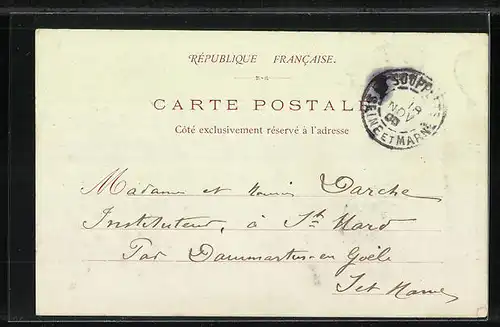 RÉPUBLIQUE FRANÇAISE.
CARTE POSTALE
Côté exclusivement réservé à l'adresse
SOUPPES
18
NOV
SEINE ET MARNE
Madame et Darche
Instituteur, à St Mard
Par Dammartin-en-Goële
Set Marne